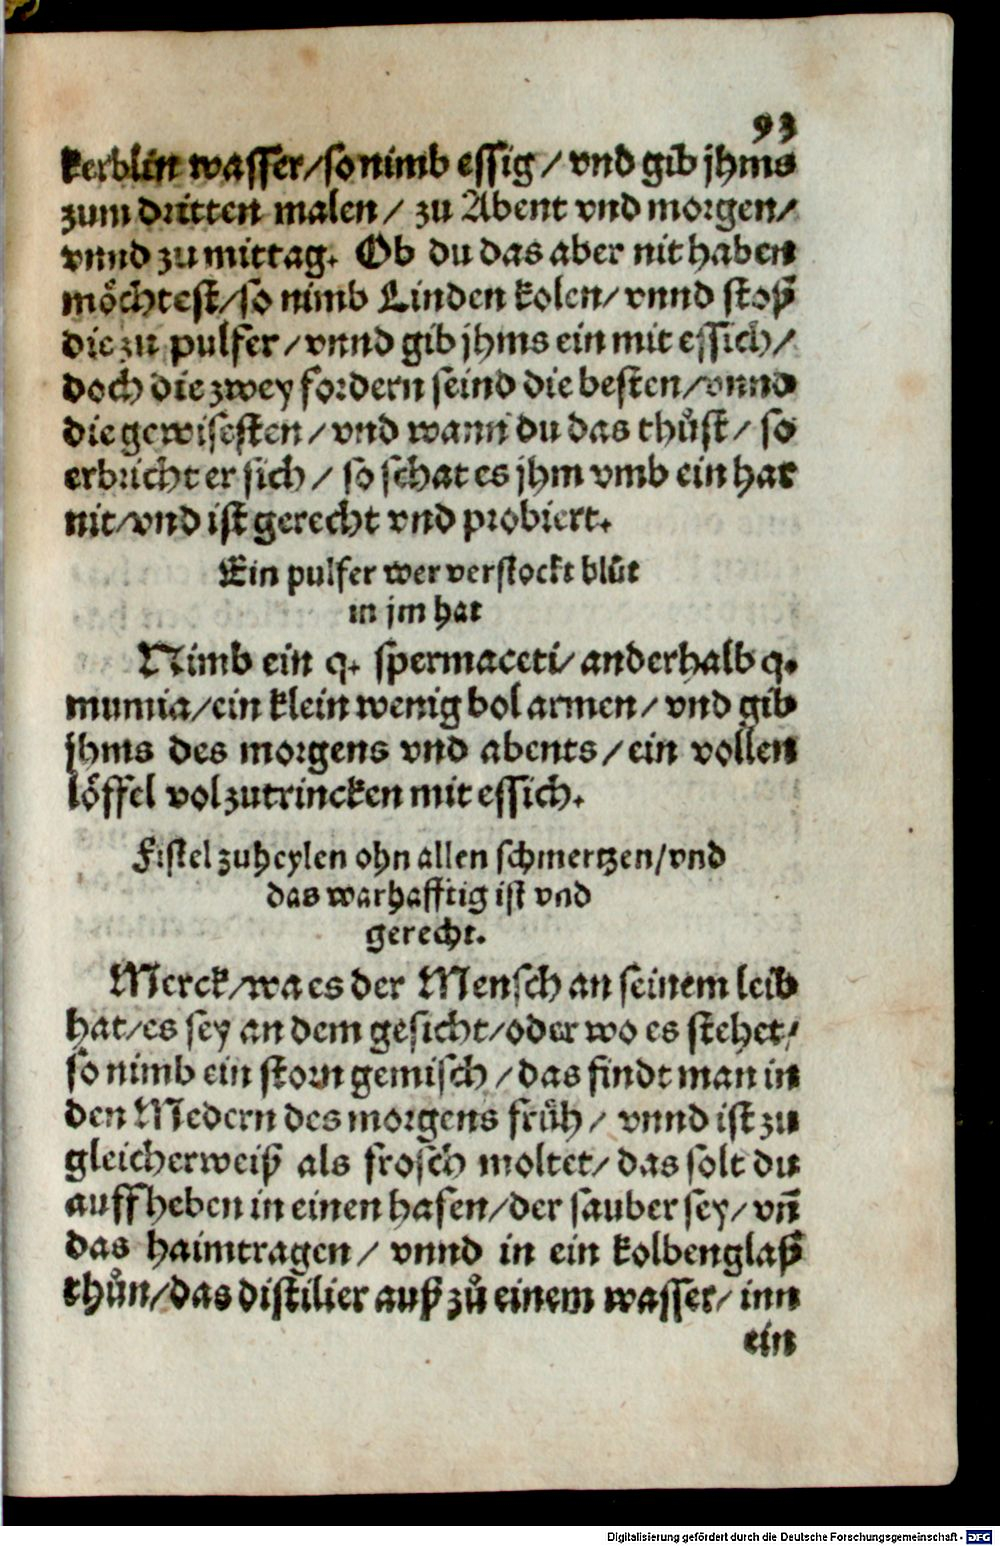 93
kerblin wasser/so nimb essig/ vnd gib jhms
zum dritten malen/ zu Abent vnd morgen/
vnnd zu mittag. Ob du das aber nit haben
möchtest/so nimb Linden kolen/ vnnd stoß
die zu pulfer/vnnd gib jhms ein mit essich/
doch die zwey fordern seind die besten/vnnd
die gewisesten/vnd wann du das thůst/ so
erbricht er sich/ so schat es jhm vmb ein har
nit/vnd ist gerecht vnd probiert.
Ein pulfer wer verstockt blůt
in jm hat
Nimb ein q. spermaceti/anderhalb q.
mumia/ein klein wenig bol armen/ vnd gib
jhms des morgens vnd abents/ein vollen
löffel vol zutrincken mit essich.
Fistel zuheylen ohn allen schmertzen/vnd
das warhafftig ist vnd
gerecht.
Merck/wa es der Mensch an seinem leib
hat/es sey an dem gesicht/oder wo es stehet/
so nimb ein storn gemisch/das findt man in
den Medern des morgens früh/ vnnd ist zu
gleicherweiß als frosch moltet/das solt du
auffheben in einen hafen/der sauber sey/vn̄
das haimtragen/ vnnd in ein kolbenglaß
thůn/das distilier auß zů einem wasser/ inn
ein
Digitalisierung gefördert durch die Deutsche Forschungsgemeinschaft - DFG